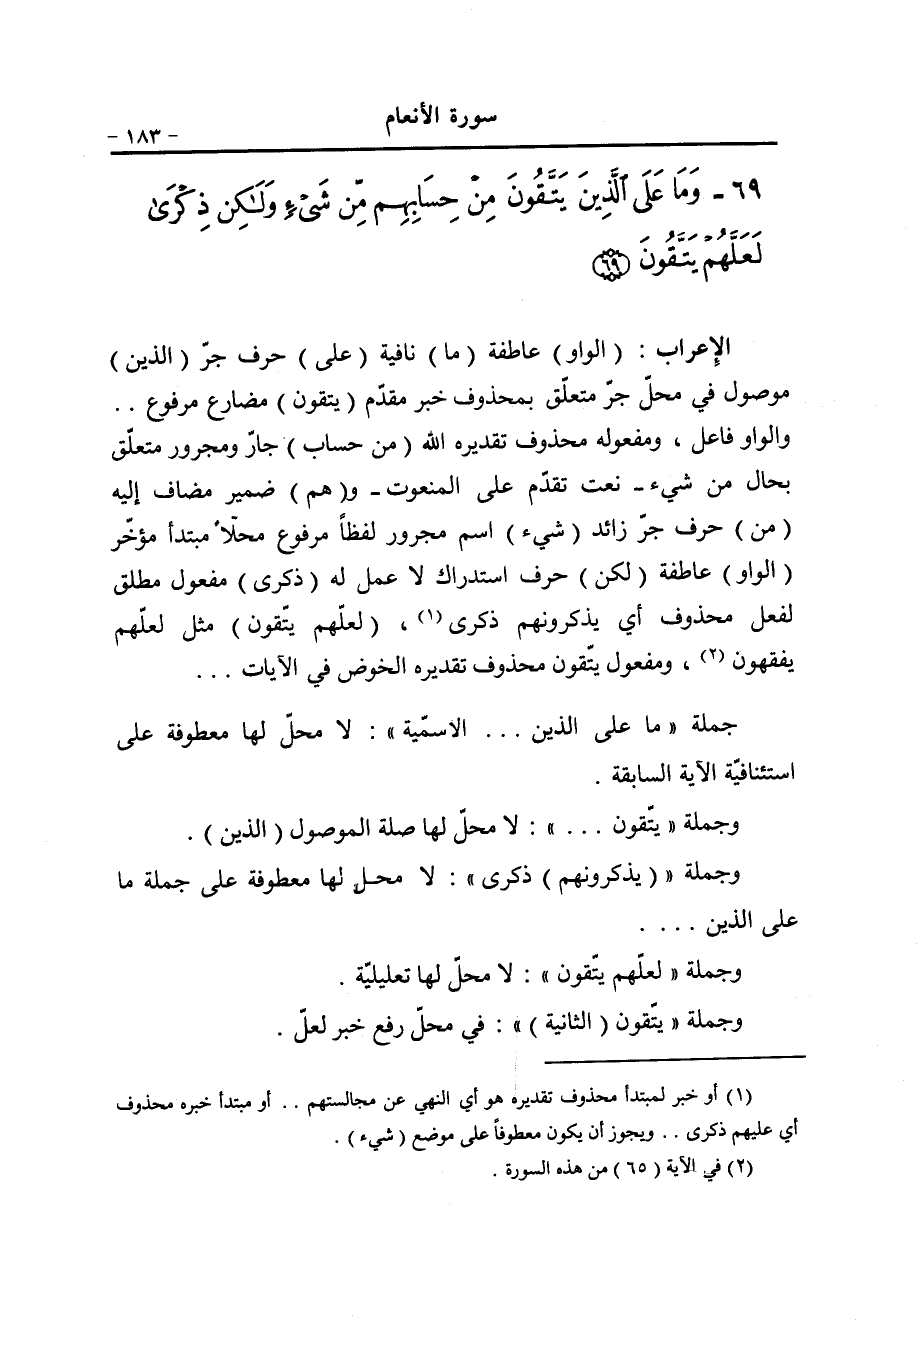 سورة الأنعام
- ١٨٣ -
٦٩ - وَمَا عَلَى ٱلَّذِينَ يَتَّقُونَ مِنْ حِسَابِهِم مِّن شَىْءٍ وَلَٰكِن ذِكْرَىٰ
لَعَلَّهُمْ يَتَّقُونَ ﴿٦٩﴾
الإعراب : ( الواو ) عاطفة ( ما ) نافية ( على ) حرف جرّ ( الذين )
موصول في محلّ جرّ متعلّق بمحذوف خبر مقدّم ( يتقون ) مضارع مرفوع . .
والواو فاعل ، ومفعوله محذوف تقديره الله ( من حساب ) جارّ ومجرور متعلّق
بحال من شيء - نعت تقدّم على المنعوت - و( هم ) ضمير مضاف إليه
( من ) حرف جرّ زائد ( شيء ) اسم مجرور لفظاً مرفوع محلّاً مبتدأ مؤخّر
( الواو ) عاطفة ( لكن ) حرف استدراك لا عمل له ( ذكرى ) مفعول مطلق
لفعل محذوف أي يذكرونهم ذكرى (١) ، ( لعلّهم يتّقون ) مثل لعلّهم
يفقهون (٢) ، ومفعول يتّقون محذوف تقديره الخوض في الآيات . . .
جملة « ما على الذين . . . الاسمّية » : لا محلّ لها معطوفة على
استئنافيّة الآية السابقة .
وجملة « يتّقون . . . » : لا محلّ لها صلة الموصول ( الذين ) .
وجملة « ( يذكرونهم ) ذكرى » : لا محل لها معطوفة على جملة ما
على الذين . . . .
وجملة « لعلّهم يتّقون » : لا محلّ لها تعليليّة .
وجملة « يتّقون ( الثانية ) » : في محلّ رفع خبر لعلّ .
(١) أو خبر لمبتدأ محذوف تقديره هو أي النهي عن مجالستهم . . أو مبتدأ خبره محذوف
أي عليهم ذكرى . . ويجوز أن يكون معطوفاً على موضع ( شيء ) .
(٢) في الآية ( ٦٥ ) من هذه السورة .